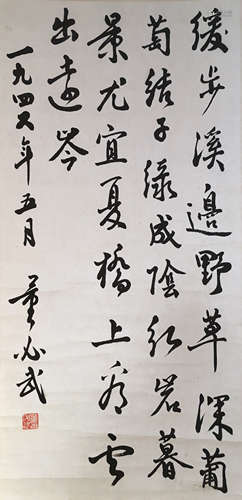 缓步溪邉野草深葡
萄结子绿成陰红岩暮
景尤宜夏橋上看云
出遠岑
一九四六年五月
董必武